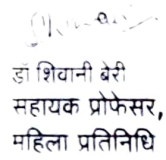 डॉ शिवानी बेरी
सहायक प्रोफेसर,
महिला प्रतिनिधि